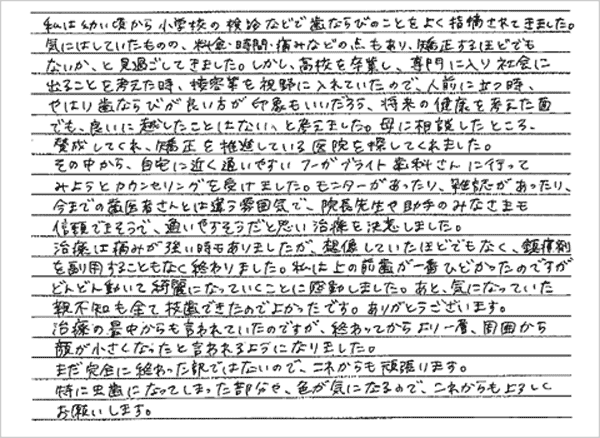 私は幼い頃から小学校の検診などで歯ならびのことをよく指摘されてきました。
気にはしていたものの、料金・時間・痛みなどの点もあり、矯正するほどでも
ないか、と見過ごしてきました。しかし、高校を卒業し、専門に入り社会に
出ることを考えた時、接客業を視野に入れていたので、人前に立つ時、
やはり歯ならびが良い方が印象もいいだろう、将来の健康を考えた面
でも、良いに越したことはない、と考えました。母に相談したところ、
賛成してくれ、矯正を推進している医院を探してくれました。
その中から、自宅に近く通いやすいフーガブライト歯科さんに行って
みようとカウンセリングを受けました。モニターがあったり、雑誌があったり、
今までの歯医者さんとは違う雰囲気で、院長先生や助手のみなさまも
信頼できそうで、通いやすそうだと思い治療を決意しました。
治療は痛みが強い時もありましたが、想像していたほどでもなく、鎮痛剤
を副用することもなく終わりました。私は上の前歯が一番ひどかったのですが
どんどん動いて綺麗になっていくことに感動しました。あと、気になっていた
親不知も全て抜歯できたので良かったです。ありがとうございます。
治療の最中からも言われていたのですが、終わってからより一層、周囲から
顔が小さくなったと言われるようになりました。
まだ完全に終わった訳ではないので、これからも頑張ります。
特に虫歯になってしまった部分や、色が気になるので、これからもよろしく
お願いします。